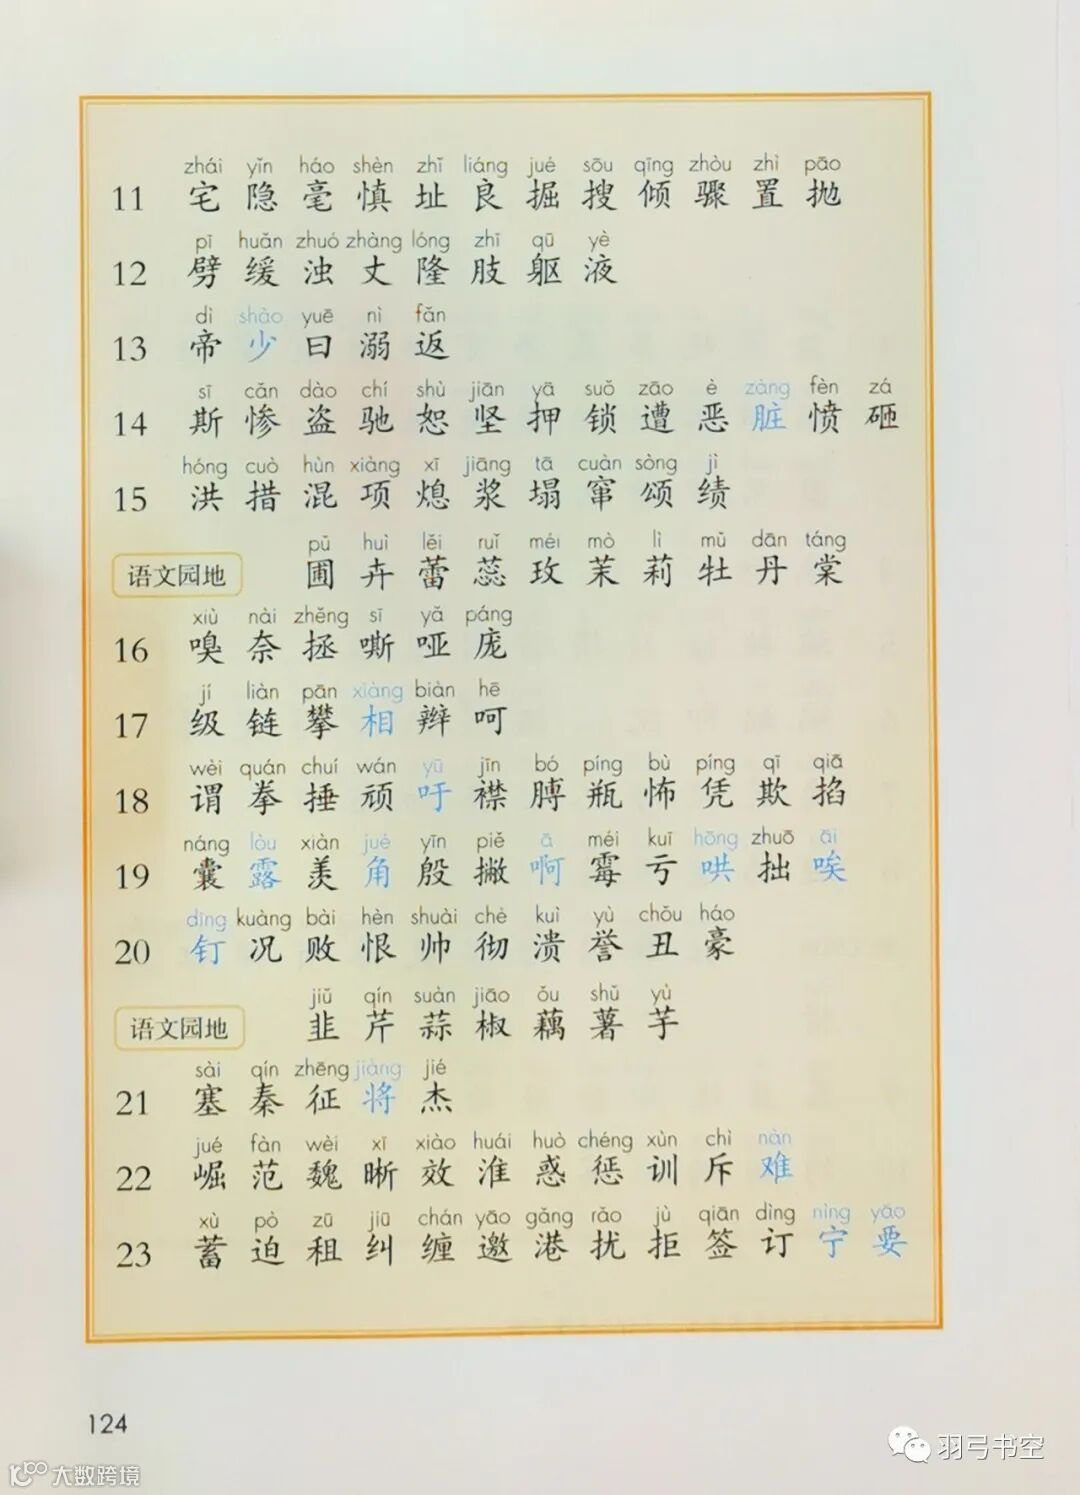 zhái yǐn háo shèn zhǐ liáng jué sōu qīng zhòu zhì pāo
11 宅 隐 毫 慎 址 良 掘 搜 倾 骤 置 抛
pī huǎn zhuó zhàng lóng zhī qū yè
12 劈 缓 浊 丈 隆 肢 躯 液
dì shào yuē nì fǎn
13 帝 少 曰 溺 返
sī cǎn dào chí shù jiān yā suǒ zāo è zàng fèn zá
14 斯 惨 盗 驰 恕 坚 押 锁 遭 恶 脏 愤 砸
hóng cuò hùn xiàng xī jiāng tā cuàn sòng jì
15 洪 措 混 项 熄 浆 塌 窜 颂 绩
pǔ huì lěi ruǐ méi mò lì mǔ dān táng
语文园地 圃 卉 蕾 蕊 玫 茉 莉 牡 丹 棠
xiù nài zhěng sī yǎ páng
16 嗅 奈 拯 嘶 哑 庞
jí liàn pān xiàng biàn hē
17 级 链 攀 相 辫 呵
wèi quán chuí wán yū jīn bó píng bù píng qī qiā
18 谓 拳 捶 顽 吁 襟 膊 瓶 怖 凭 欺 掐
náng lòu xiàn jué yīn piě ā méi kuī hōng zhuō āi
19 囊 露 羡 角 殷 撇 啊 霉 亏 哄 拙 唉
dīng kuàng bài hèn shuài chè kuì yù chǒu háo
20 钉 况 败 恨 帅 彻 溃 誉 丑 豪
jiǔ qín suàn jiāo ǒu shǔ yù
语文园地 韭 芹 蒜 椒 藕 薯 芋
sài qín zhēng jiàng jié
21 塞 秦 征 将 杰
jué fàn wèi xī xiào huái huò chéng xùn chì nàn
22 崛 范 魏 晰 效 淮 惑 惩 训 斥 难
xù pò zū jiū chán yāo gǎng rǎo jù qiān dìng nìng yāo
23 蓄 迫 租 纠 缠 邀 港 扰 拒 签 订 宁 要
124
羽弓书空
大数跨境